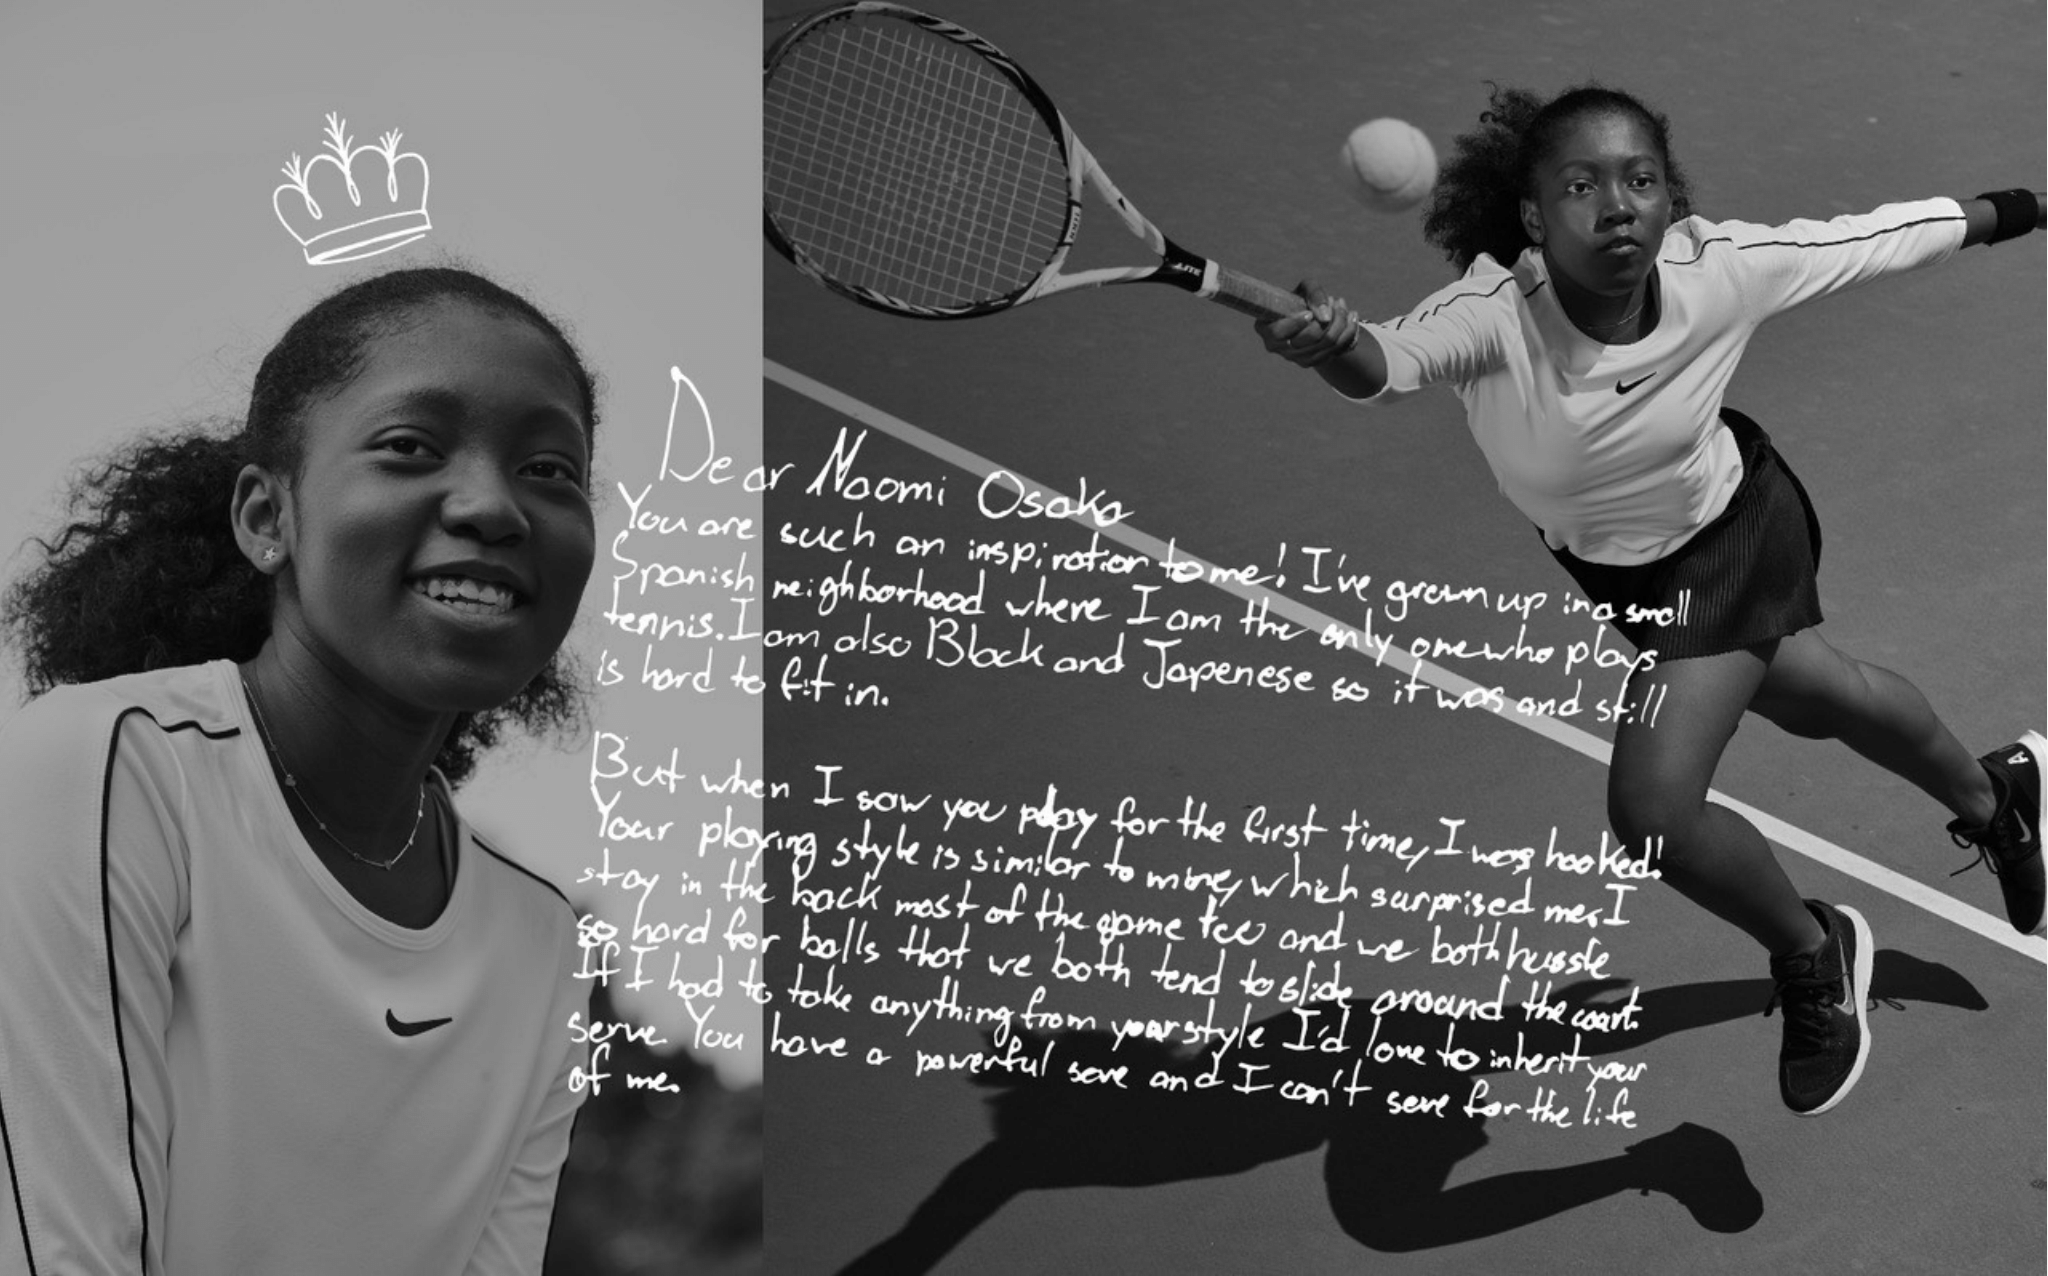 Dear Naomi Osaka
You are such an inspiration to me! I've grown up in a small
Spanish neighborhood where I am the only one who plays
tennis. I am also Black and Japenese so it was and still
is hard to fit in.
But when I saw you play for the first time, I was hooked!
Your playing style is similar to mine, which surprised me. I
stay in the back most of the game too and we both hussle
so hard for balls that we both tend to slide around the court.
If I had to take anything from your style I'd love to inherit your
serve. You have a powerful serve and I can't serve for the life
of me.